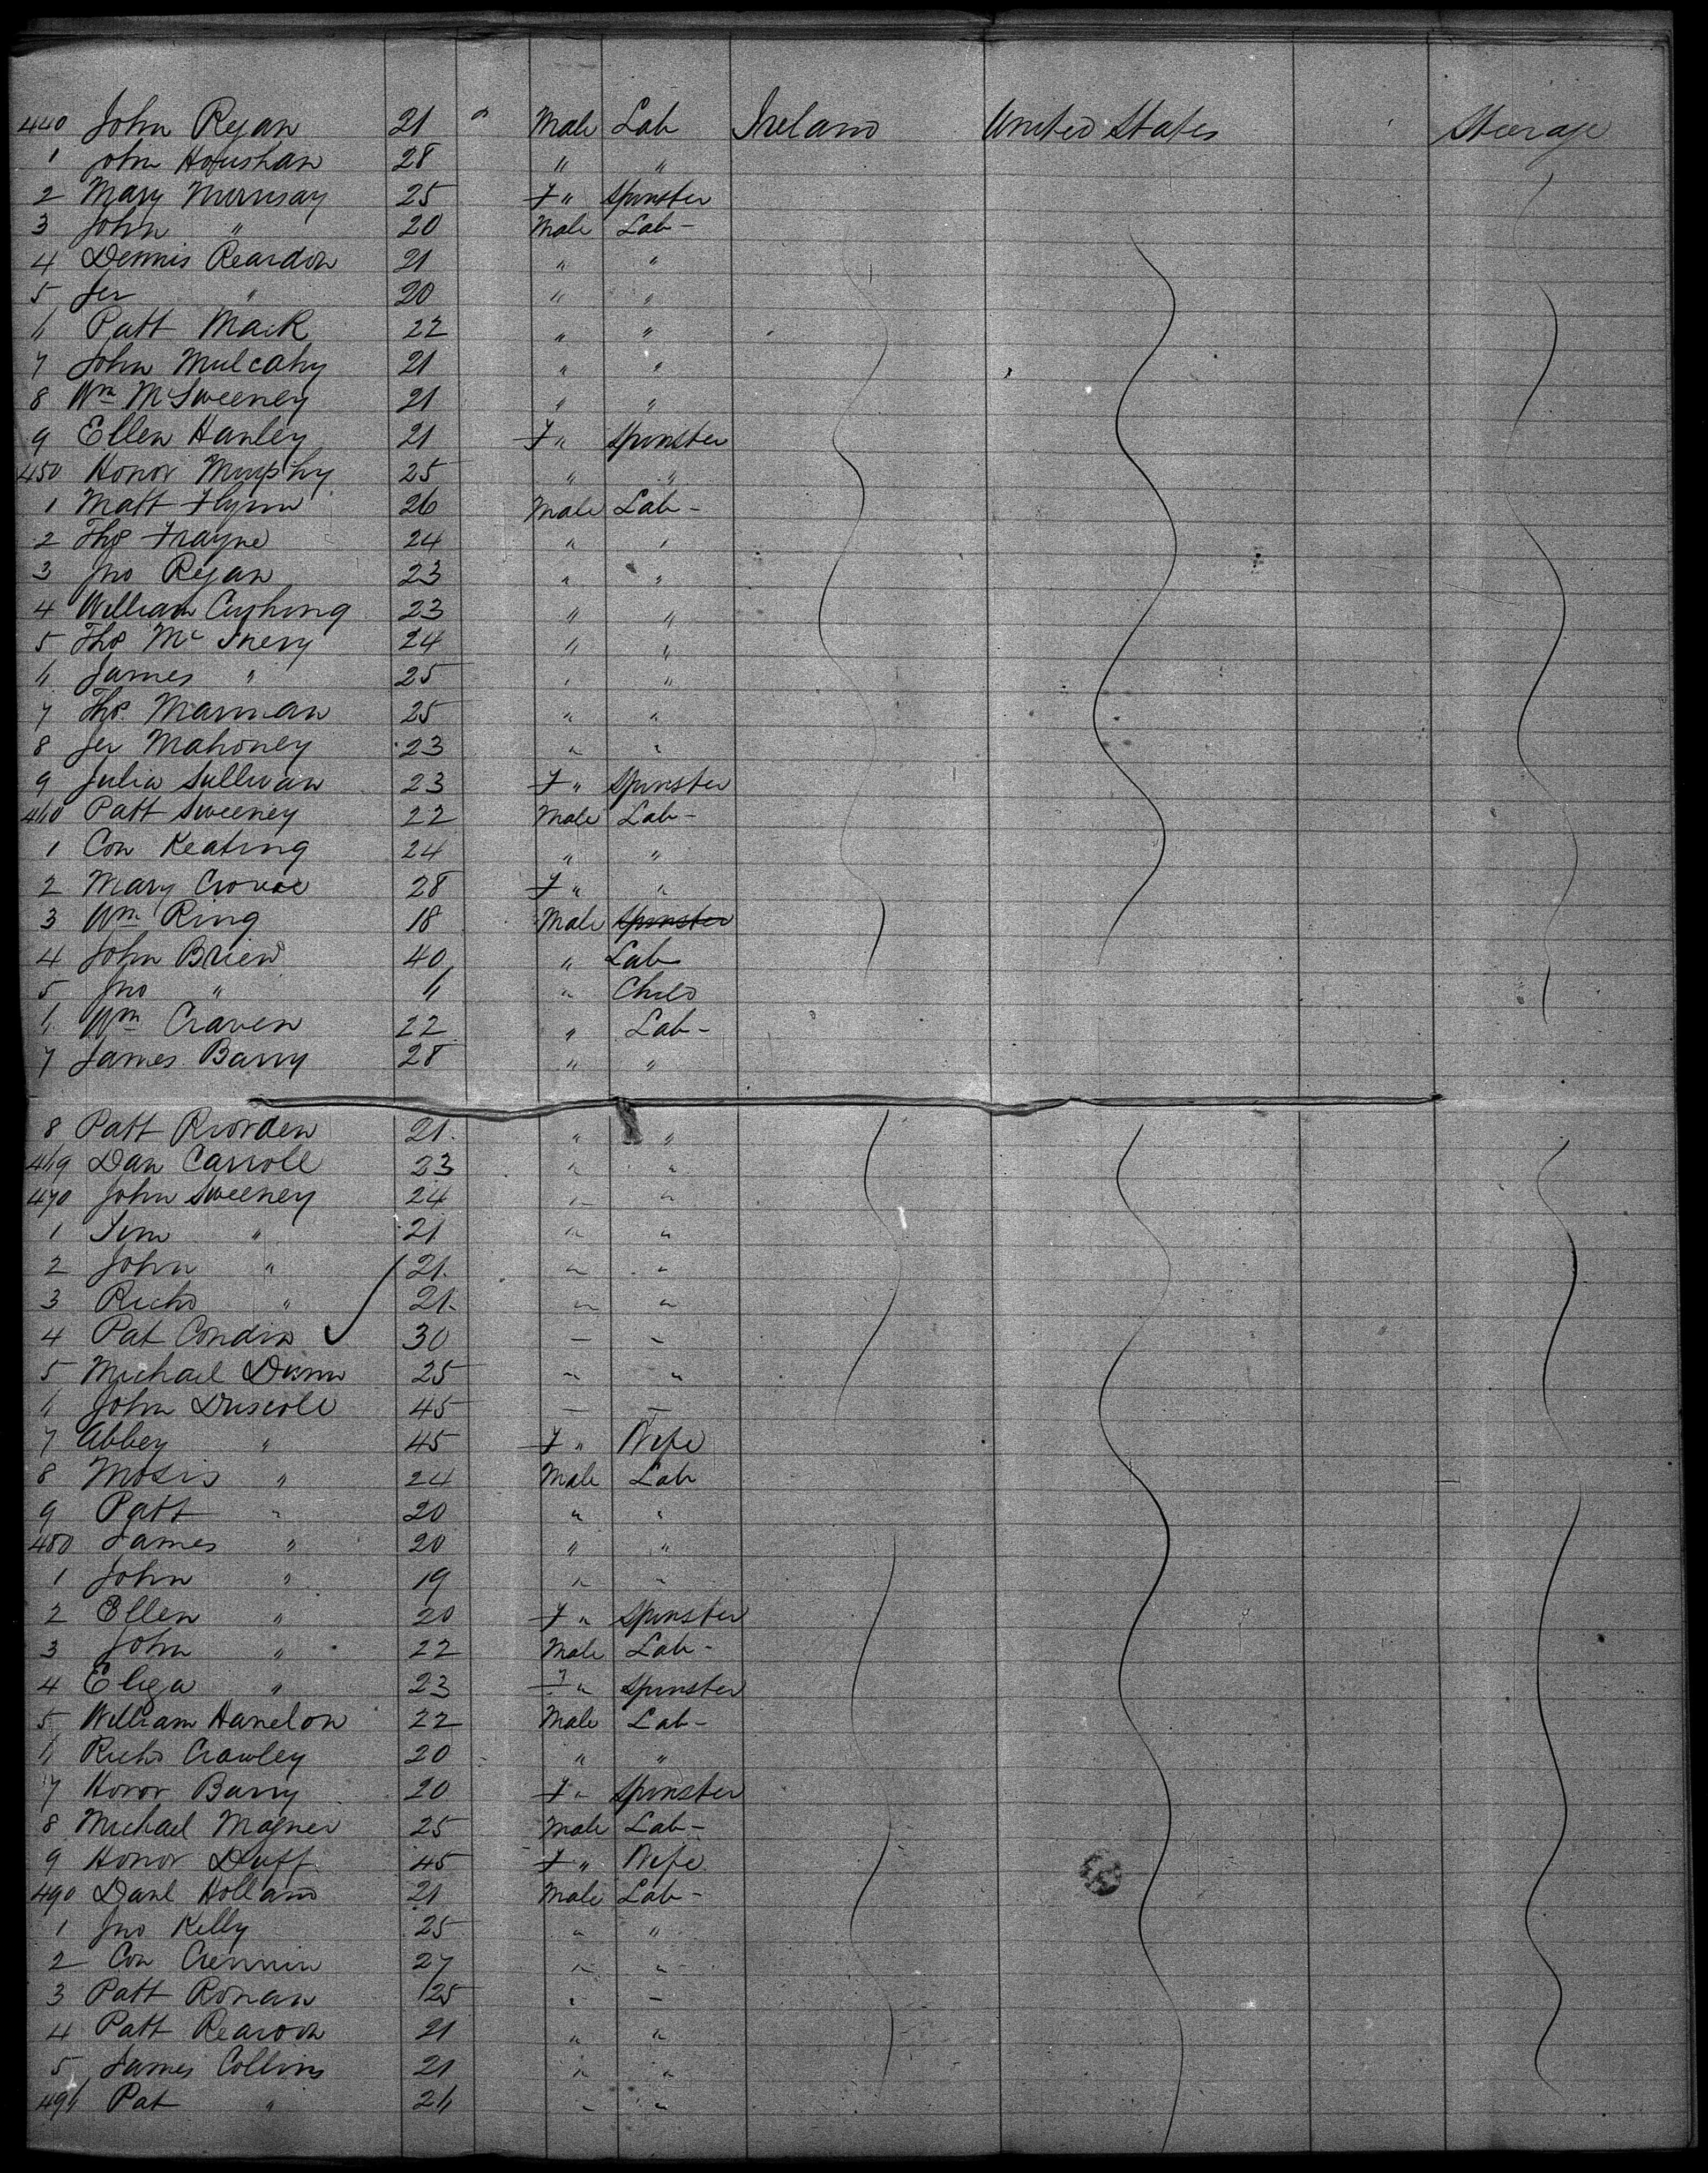 440 John Ryan 21 " Male Lab Ireland United States Steerage
1 John Houshan 28 " "
2 Mary Murrisay 25 F " Spinster
3 John " 20 Male Lab -
4 Dennis Reardon 21 " "
5 Jer " 20 " "
6 Patt Mack 22 " "
7 John Mulcahy 21 " "
8 Wm McSweeney 21 " "
9 Ellen Hanley 21 F " Spinster
450 Honor Murphy 25 " "
1 Matt Flynn 26 Male Lab -
2 Thos Frayne 24 " "
3 Jno Ryan 23 " "
4 William Cushing 23 " "
5 Thos Mc Inery 24 " "
6 James " 25 " "
7 Thos Marman 25 " "
8 Jer Mahoney 23 " "
9 Julia Sullivan 23 F " Spinster
460 Patt Sweeney 22 Male Lab -
1 Con Keating 24 " "
2 Mary 28 F " "
3 Wm Ring 18 Male Spinster
4 John Brien 40 " Lab
5 Jno " 6 " Child
6 Wm Craven 22 " Lab -
7 James Barry 28 " "
8 Patt Riorden 21 " "
469 Dan Carroll 23 " "
470 John Sweeney 24 " "
1 Tim " 21 " "
2 John " 21 " "
3 Richd " 21 " "
4 Pat Condin 30 " "
5 Michael Dunn 25 " "
6 John Driscoll 45 " "
7 Abbey " 45 F " Wife
8 Moses " 24 Male Lab
9 Patt " 20 " "
480 James " 20 " "
1 John " 19 " "
2 Ellen " 20 F " Spinster
3 John " 22 Male Lab -
4 Eliza " 23 F " Spinster
5 William Hanelon 22 Male Lab -
6 Richd Crawley 20 " "
7 Honor Barry 20 F " Spinster
8 Michael Magner 25 Male Lab -
9 Honor Duff 45 F " Wife
490 Danl Holland 21 Male Lab -
1 Jno Kelly 25 " "
2 Con Crennin 27 " "
3 Patt Ronan 25 " "
4 Patt Reardon 21 " "
5 James Collins 21 " "
496 Pat " 26 " "